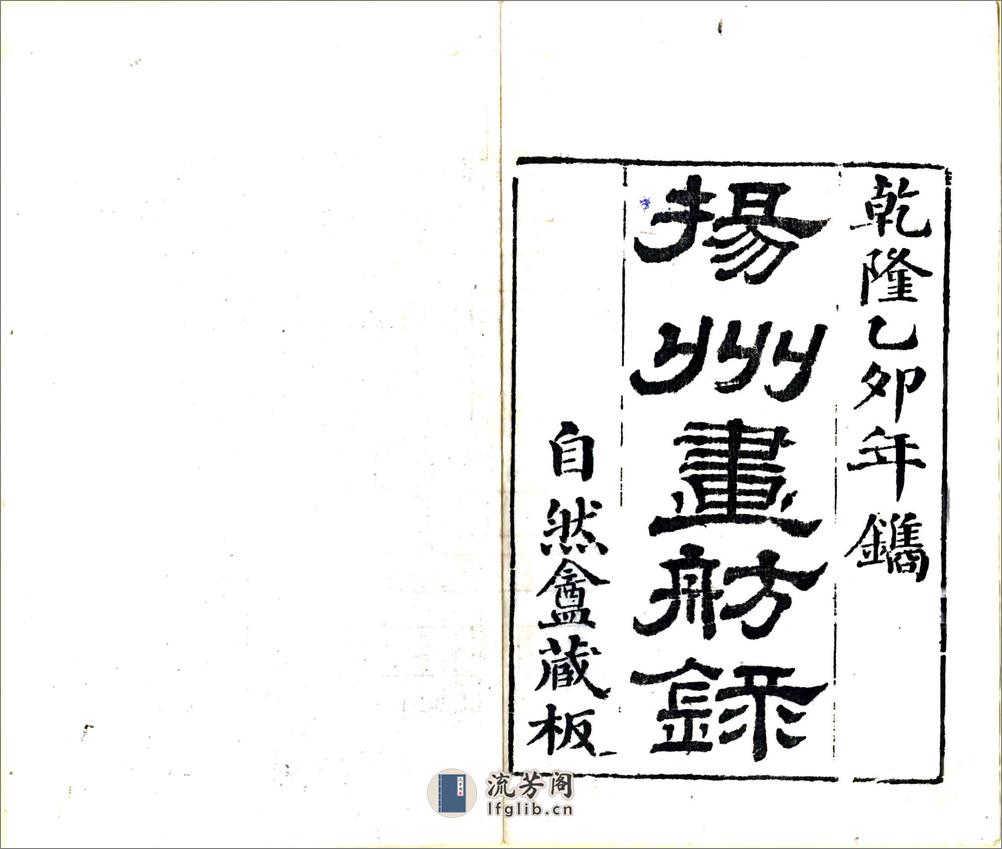 乾隆乙卯年鐫
揚州畫舫錄
自然盦藏板
流芳阁
lfglib.cn